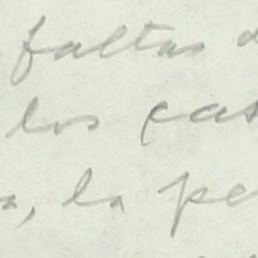 faltas
los cas
a, la pe